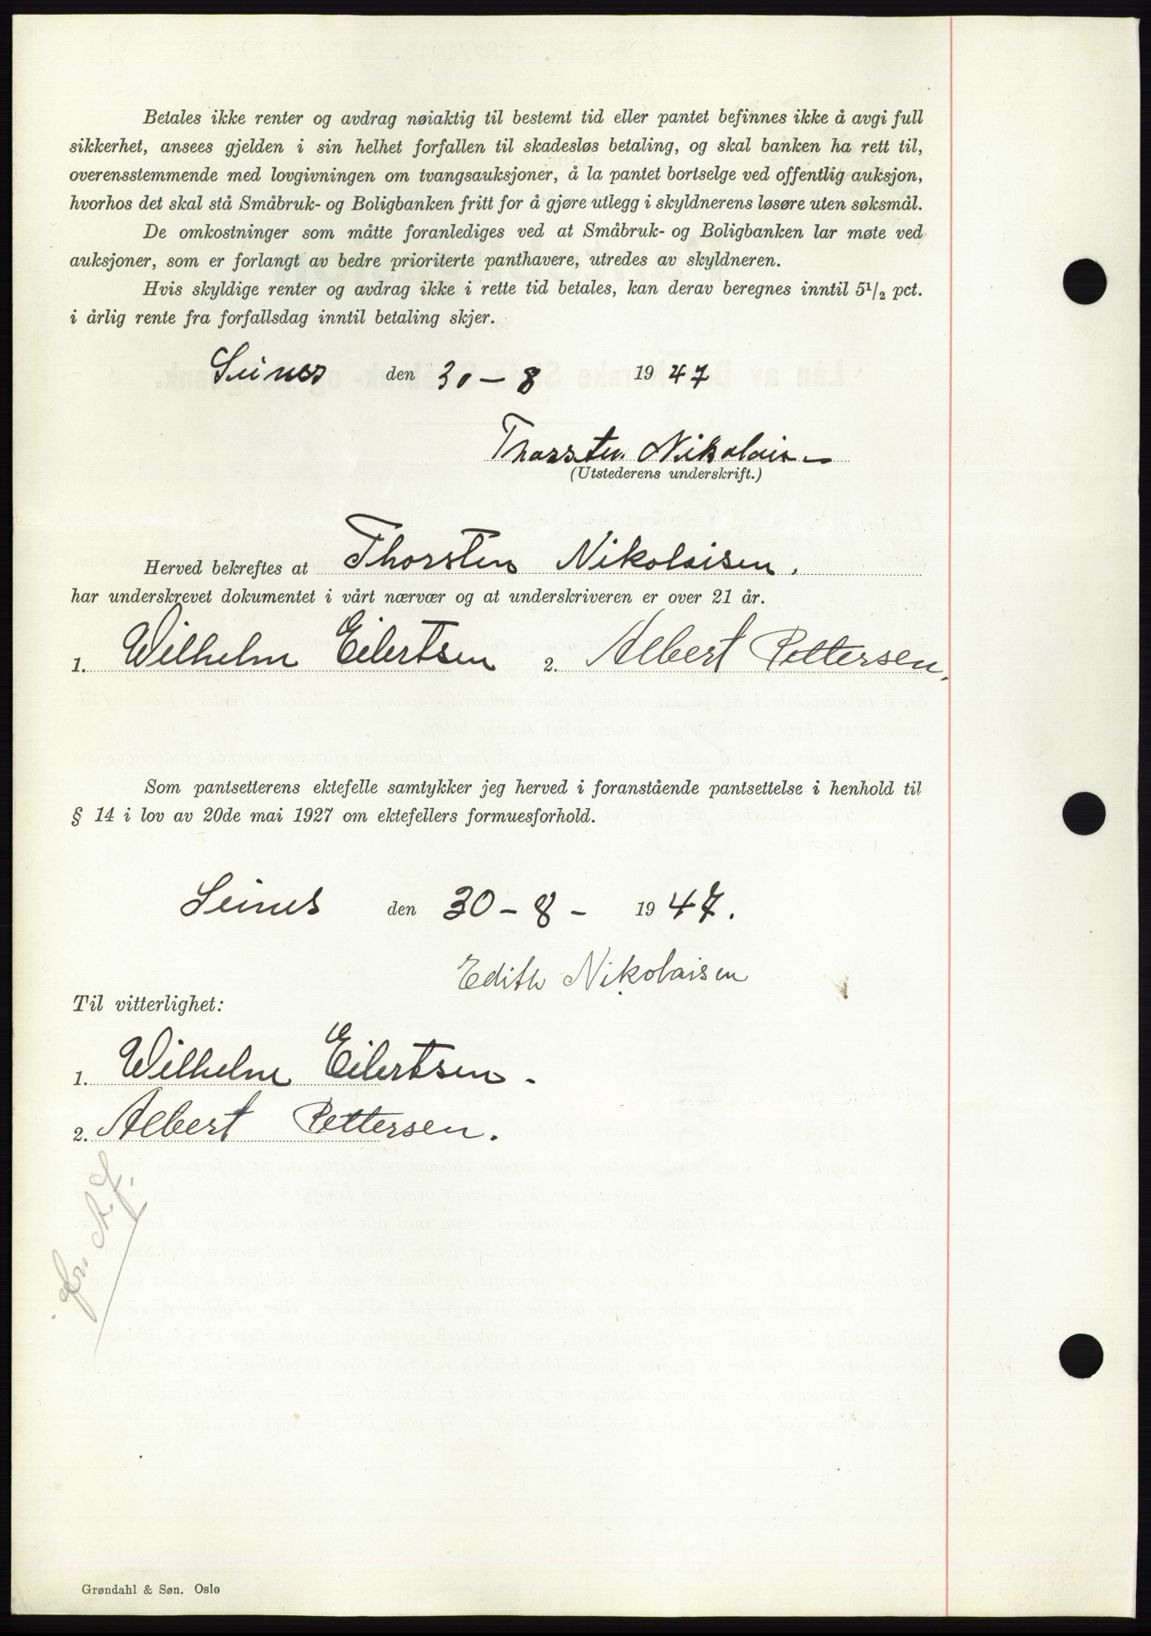 Betales ikke renter og avdrag nøiaktig til bestemt tid eller pantet befinnes ikke å avgi full
sikkerhet, ansees gjelden i sin helhet forfallen til skadesløs betaling, og skal banken ha rett til,
overensstemmende med lovgivningen om tvangsauksjoner, å la pantet bortselge ved offentlig auksjon,
hvorhos det skal stå Småbruk- og Boligbanken fritt for å gjøre utlegg i skyldnerens løsøre uten søksmål.
De omkostninger som måtte foranlediges ved at Småbruk- og Boligbanken lar møte ved
auksjoner, som er forlangt av bedre prioriterte panthavere, utredes av skyldneren.
Hvis skyldige renter og avdrag ikke i rette tid betales, kan derav beregnes inntil 5 1/2 pct.
i årlig rente fra forfallsdag inntil betaling skjer.
Seines den 30-8 1947
Thorsten Nikolaisen
(Utstederens underskrift.)
Herved bekreftes at Thorsten Nikolaisen.
har underskrevet dokumentet i vårt nærvær og at underskriveren er over 21 år.
1. Wilhelm Eilertsen 2. Albert Pettersen.
Som pantsetterens ektefelle samtykker jeg herved i foranstående pantsettelse i henhold til
§ 14 i lov av 20de mai 1927 om ektefellers formuesforhold.
Seines den 30-8- 1947.
Edith Nikolaisen
Til vitterlighet:
1. Wilhelm Eilertsen-
2. Albert Pettersen.
Grøndahl & Søn. Oslo